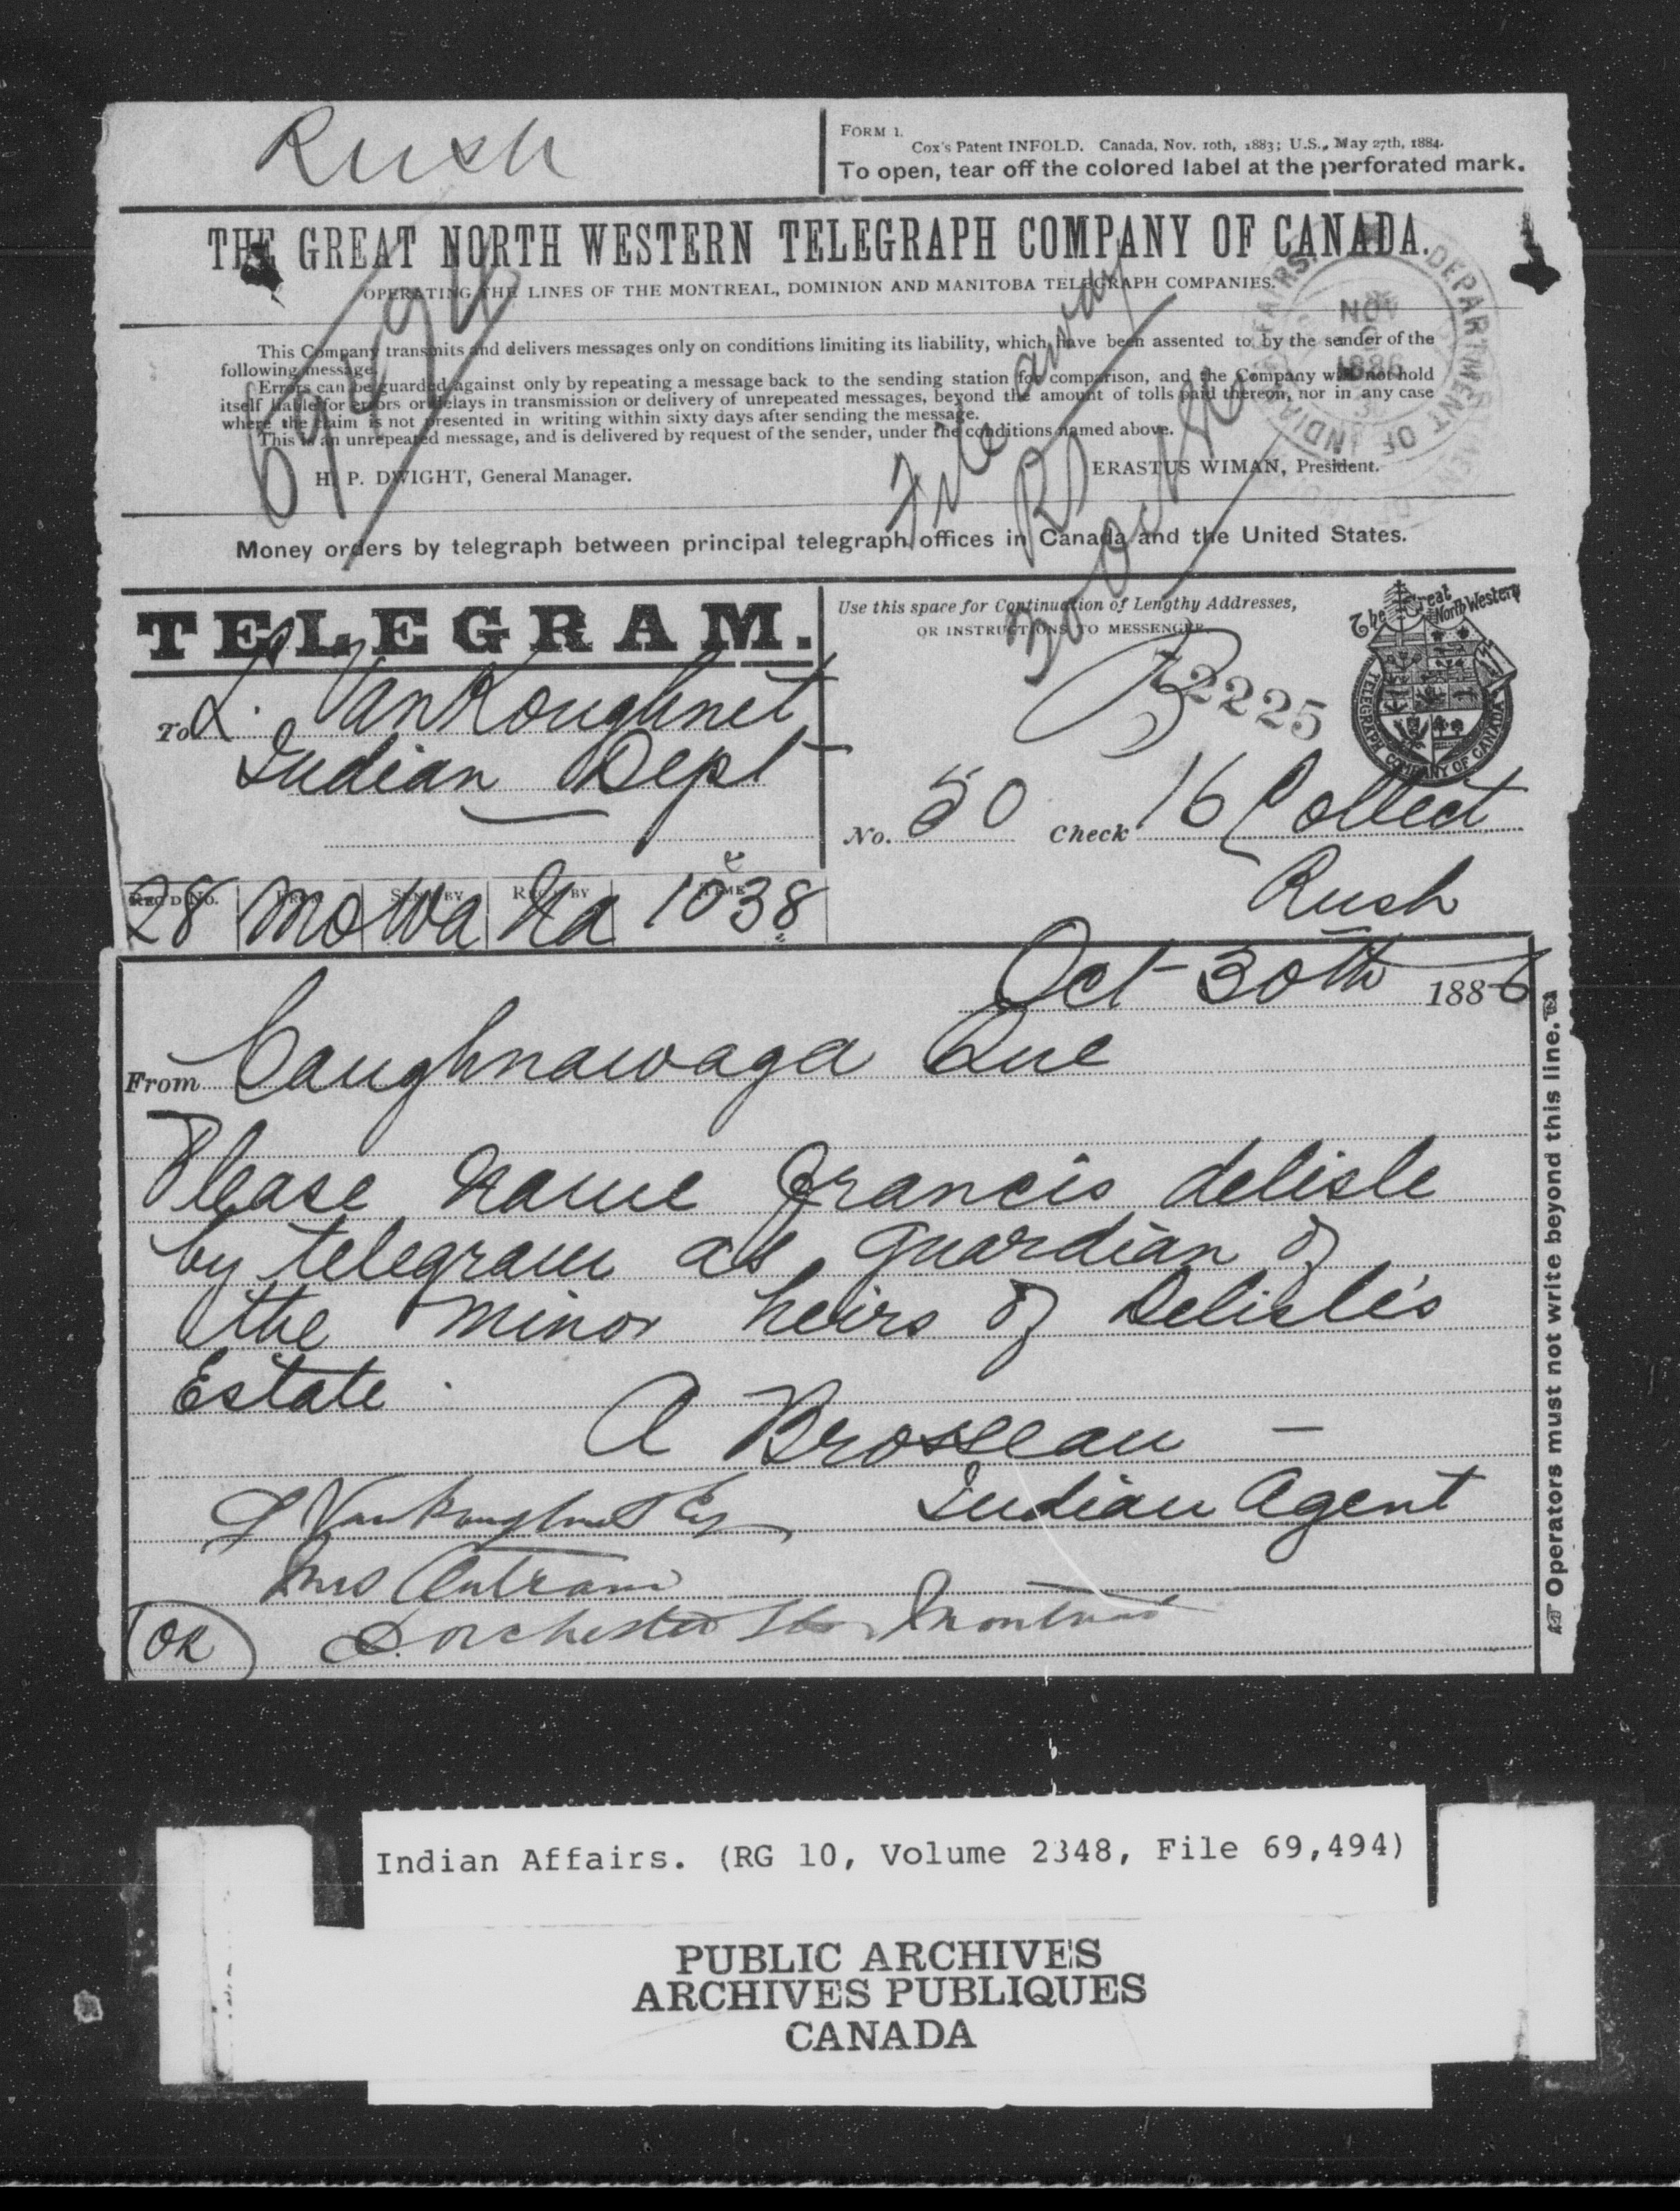 Rush
FORM 1.
Cox's Patent INFOLD. Canada, Nov. 10th, 1883; U.S., May 27th, 1884.
To open, tear off the colored label at the perforated mark.
THE GREAT NORTH WESTERN TELEGRAPH COMPANY OF CANADA.
OPERATING THE LINES OF THE MONTREAL, DOMINION AND MANITOBA TELEGRAPH COMPANIES.
DEPARTMENT OF INDIAN AFFAIRS.
NOV
1886
This Company transmits and delivers messages only on conditions limiting its liability, which have been assented to by the sender of the
following message.
Errors can be guarded against only by repeating a message back to the sending station for comparison, and the Company will not hold
itself liable for errors or delays in transmission or delivery of unrepeated messages, beyond the amount of tolls paid thereon, nor in any case
where the claim is not presented in writing within sixty days after sending the message.
This is an unrepeated message, and is delivered by request of the sender, under the conditions named above.
H. P. DWIGHT, General Manager.
ERASTUS WIMAN, President.
69494
File away
30 Oct 86
Money orders by telegraph between principal telegraph offices in Canada and the United States.
TELEGRAM.
Use this space for Continuation of Lengthy Addresses,
OR INSTRUCTIONS TO MESSENGER.
The Great North Western
TELEGRAPH COMPANY OF CANADA
72225
To L. VanKoughnet
Indian Dept
No. 50 Check 16 Collect
Rush
REC'D No. FROM SENT BY REC'D BY TIME
28 Mo Wa Ha 1038
Oct 30th 1886
From Caughnawaga Que
Please name Francis delisle
by telegram as guardian of
the minor heirs of Delisle's
Estate
A Brosseau —
Indian Agent
L VanKoughnet Esq
Mrs Outram
Dorchester St Montreal
OK
Operators must not write beyond this line.
Indian Affairs. (RG 10, Volume 2348, File 69,494)
PUBLIC ARCHIVES
ARCHIVES PUBLIQUES
CANADA